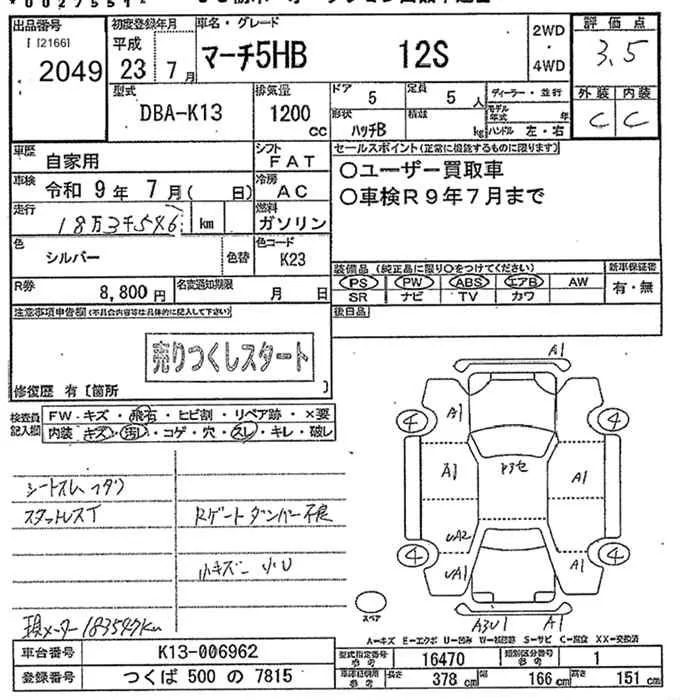 出品番号 初度登録年月 車名・グレード 評価点
[21661]
2049 平成 23 7月 マーチ5HB 12S 2WD・4WD 3.5
型式 排気量 ドア 定員 ディーラー・並行 外装 内装
DBA-K13 1200cc 5 5人 モデル年式 年 C C
形状 ハッチB 積載 kg ハンドル 左・右
車歴 自家用 シフト FAT セールスポイント(正常に機能するものに限ります)
○ユーザー買取車
車検 令和9年7月(日) 冷房 AC
○車検R9年7月まで
走行 18万3千586 km 燃料 ガソリン
色 シルバー 色替 色コード K23
装備品(純正品に限り○をつけてください) 新車保証書
R券 8,800円 名変通知期限 月 日
PS PW ABS エアB AW 有・無
SR ナビ TV カワ
注意事項申告欄(不具合内容等は具体的に記入して下さい) 後日品
売りつくしスタート
修復歴 有[箇所 ]
検査員記入欄 FW-キズ・飛石・ヒビ割・リペア跡・×要
内装 キズ・汚レ・コゲ・穴・スレ・キレ・破レ
スタットレスT Rゲートダンパー不良
小キズ 小U
現メーター 183597km
A1
4 A1 4
A1 A1
UA2
4 UA1 A1 4
スペア
A3U1 A1
A-キズ E-エクボ U-凹み W-補修跡 S-サビ C-腐食 XX-交換済
車台番号 K13-006962 型式指定番号 参考 16470 類別区分番号 参考 1
登録番号 つくば 500 の 7815 参考 長さ 378cm 幅 166cm 高さ 151cm